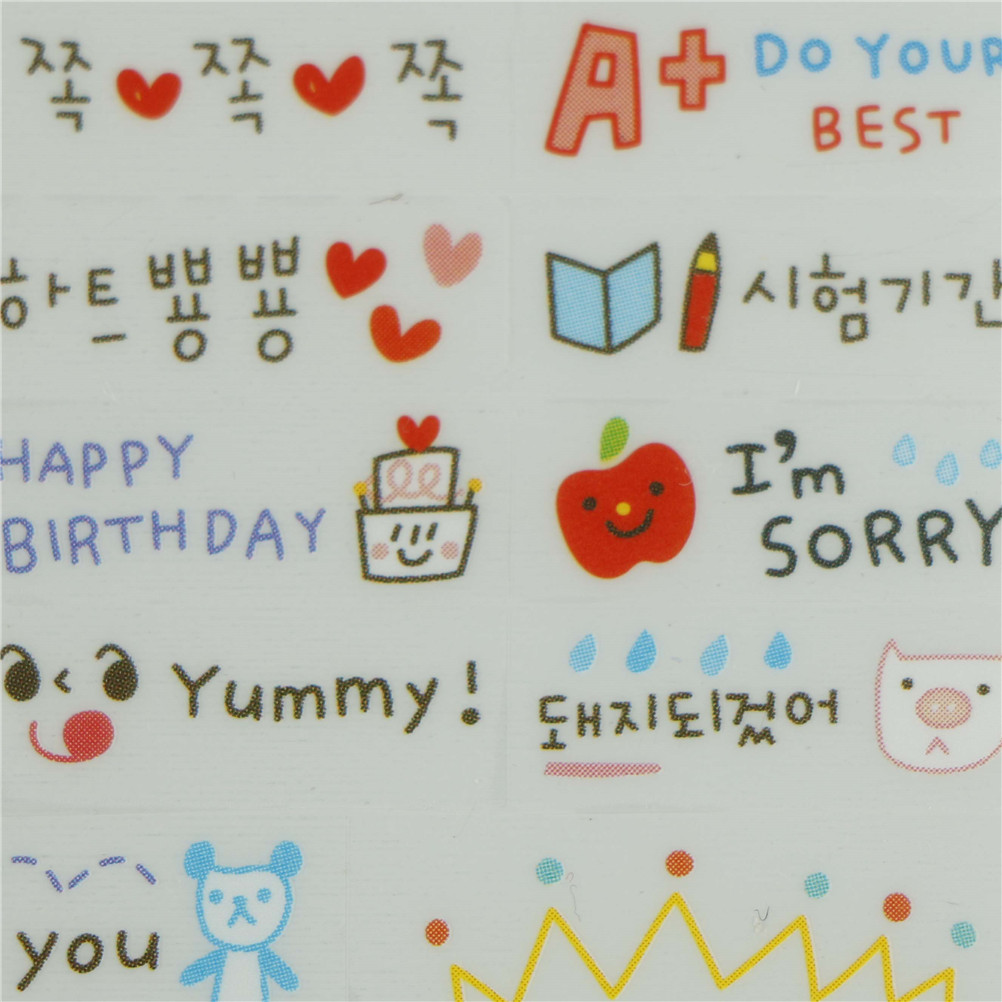 쪽 쪽 쪽
A+
DO YOUR
BEST
하트 뿅 뿅
시험기간
HAPPY
BIRTHDAY
I'm
SORRY
Yummy!
돼지되겠어
you